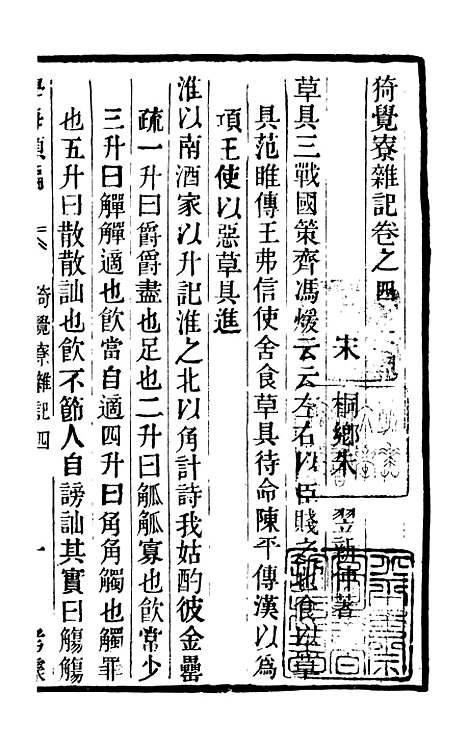 猗覺寮雜記卷之四
宋 桐鄉朱 翌新仲著
草具三戰國策齊馮煖云云左右以臣賤之也食以草
具范睢傳王弗信使舍食草具待命陳平傳漢以為
項王使以惡草具進
淮以南酒家以升記淮之北以角計詩我姑酌彼金罍
疏一升曰爵爵盡也足也二升曰觚觚寡也飲常少
三升曰觶觶適也飲當自適四升曰角角觸也觸罪
也五升曰散散訕也飲不節人自謗訕其實曰觴觴
學海類編 猗覺寮雜記四 一 考據